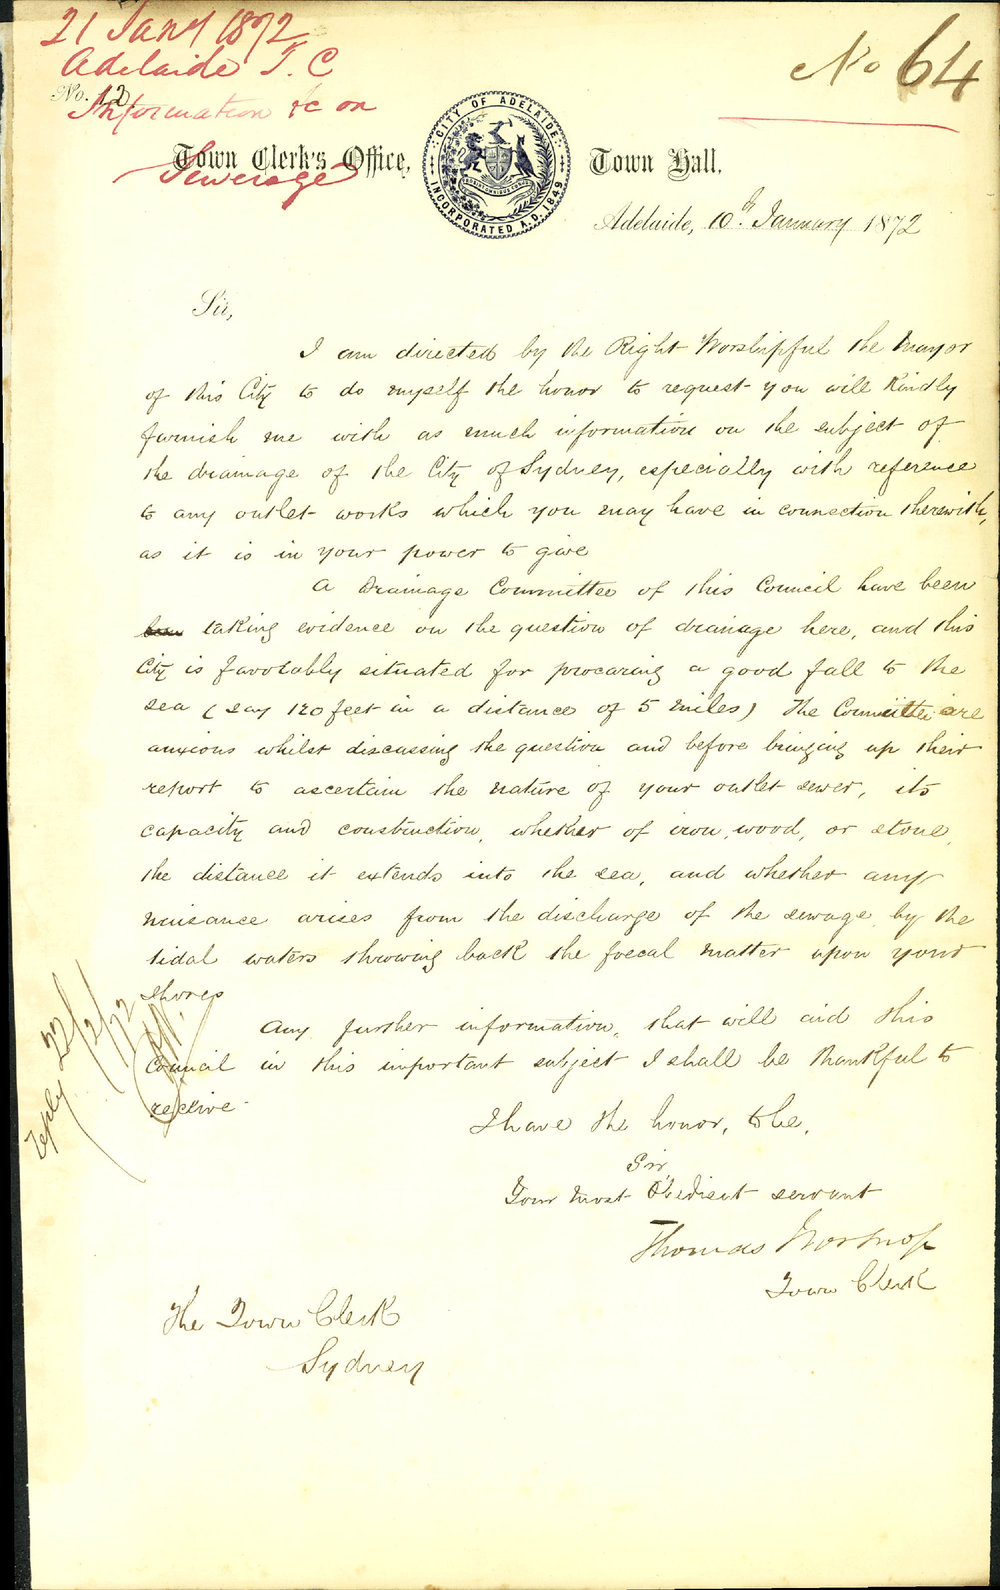 21 Jany 1872
Adelaide T. C
No. 12
Information &c on
Sewerage
No 64
Town Clerk's Office,
CITY OF ADELAIDE
INCORPORATED A.D. 1849
Town Hall.
Adelaide, 10th January 1872
Sir,
I am directed by the Right Worshipful the Mayor
of this City to do myself the honor to request you will kindly
furnish me with as much information on the subject of
the drainage of the City of Sydney, especially with reference
to any outlet works which you may have in connection therewith,
as it is in your power to give
A Drainage Committee of this Council have been
been taking evidence on the question of drainage here, and this
City is favorably situated for procuring a good fall to the
sea (say 120 feet in a distance of 5 miles) The Committee are
anxious whilst discussing the question and before bringing up their
report to ascertain the nature of your outlet sewer, its
capacity and construction, whether of iron, wood, or stone,
the distance it extends into the sea, and whether any
nuisance arises from the discharge of the sewage by the
tidal waters throwing back the foecal matter upon your
shores
Any further information, that will aid this
Council in this important subject I shall be thankful to
receive.
reply 22/2/72
I have the honor, to be,
Sir,
Your most Obedient servant
Thomas Worsnop
Town Clerk
The Town Clerk
Sydney